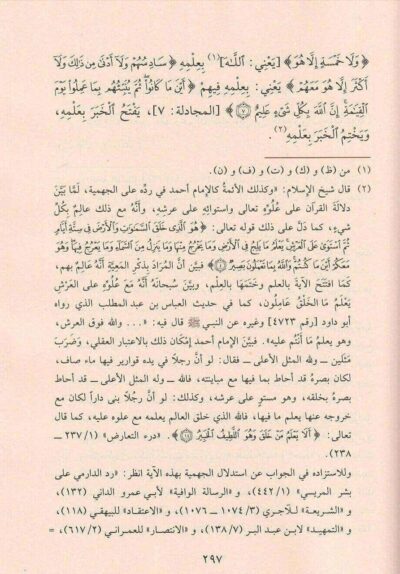 ﴿ وَلَا خَمْسَةٍ إِلَّا هُوَ ﴾ [يَعْنِي: اللَّهُ](١) بِعِلْمِهِ ﴿ سَادِسُهُمْ وَلَا أَدْنَىٰ مِن ذَٰلِكَ وَلَا
أَكْثَرَ إِلَّا هُوَ مَعَهُمْ ﴾ يَعْنِي: بِعِلْمِهِ فِيهِمْ ﴿ أَيْنَ مَا كَانُوا ثُمَّ يُنَبِّئُهُم بِمَا عَمِلُوا يَوْمَ
الْقِيَامَةِ إِنَّ اللَّهَ بِكُلِّ شَيْءٍ عَلِيمٌ ٧ ﴾ [المجادلة: ٧]، يَفْتَحُ الْخَبَرَ بِعِلْمِهِ،
وَيَخْتِمُ الْخَبَرَ بِعِلْمِهِ(٢).
(١) من (ظ) و (ك) و (ت) و (ف) و (ن).
(٢) قال شيخ الإسلام: «وكذلك الأئمةُ كالإمام أحمد في ردِّه على الجهمية، لمَّا بيَّن
دلالةَ القرآن على عُلُوِّه تعالى واستوائِه على عرشِه، وأنَّه مع ذلك عالِمٌ بِكُلِّ
شيءٍ، كما دَلَّ على ذلك قوله تعالى: ﴿ هُوَ الَّذِي خَلَقَ السَّمَاوَاتِ وَالْأَرْضَ فِي سِتَّةِ أَيَّامٍ
ثُمَّ اسْتَوَىٰ عَلَى الْعَرْشِ يَعْلَمُ مَا يَلِجُ فِي الْأَرْضِ وَمَا يَخْرُجُ مِنْهَا وَمَا يَنزِلُ مِنَ السَّمَاءِ وَمَا يَعْرُجُ فِيهَا وَهُوَ
مَعَكُمْ أَيْنَ مَا كُنتُمْ وَاللَّهُ بِمَا تَعْمَلُونَ بَصِيرٌ ٤ ﴾ فبيَّن أنَّ المُرَادَ بِذِكرِ المَعِيَّةِ أنَّهُ عَالِمٌ بهم،
كَمَا افتتحَ الآيةَ بالعلم وخَتَمَها بالعِلْمِ، وبيَّن سُبحانَه أنَّهُ مَعَ عُلُوِّهِ على العَرْشِ
يَعْلَمُ مَا الخَلْقُ عَامِلُون، كما في حديث العباس بن عبد المطلب الذي رواه
أبو داود [رقم ٤٧٢٣] وغيره عن النبي ﷺ قال فيه: «... والله فوق العرش،
وهو يعلمُ ما أَنْتُم عليه». فبيَّن الإمام أحمد إمْكان ذلك بالاعتبار العقلي، وضَرَبَ
مَثَلَين ــ ولله المثل الأعلى ــ فقال: لو أنَّ رجلًا في يده قوارير فيها ماء صاف،
لكان بصرهُ قد أحاط بما فيها مع مباينته، فالله ــ وله المثل الأعلى ــ قد أحاط
بصرهُ بخلقه، وهو مستوٍ على عرشه، وكذلك: لو أنَّ رجُلًا بنى داراً لكان مع
خروجه عنها يعلم ما فيها، فالله الذي خلق العالم يعلمه مع علوه عليه، كما قال
تعالى: ﴿ أَلَا يَعْلَمُ مَنْ خَلَقَ وَهُوَ اللَّطِيفُ الْخَبِيرُ ١٤ ﴾». «درء التعارض» (١/ ٢٣٧ ــ
٢٣٨).
وللاستزاده في الجواب عن استدلال الجهمية بهذه الآية انظر: «رد الدارمي على
بشر المريسي» (١/ ٤٤٢)، و «الرسالة الوافية» لأبي عمرو الداني (١٣٢)،
و «الشريعة» للآجري (٣/ ١٠٧٤ ــ ١٠٧٦)، و «الاعتقاد» للبيهقي (١١٨)،
و «التمهيد» لابن عبد البر (٧/ ١٣٨)، و «الانتصار» للعمراني (٢/ ٦١٧)، =
٢٩٧